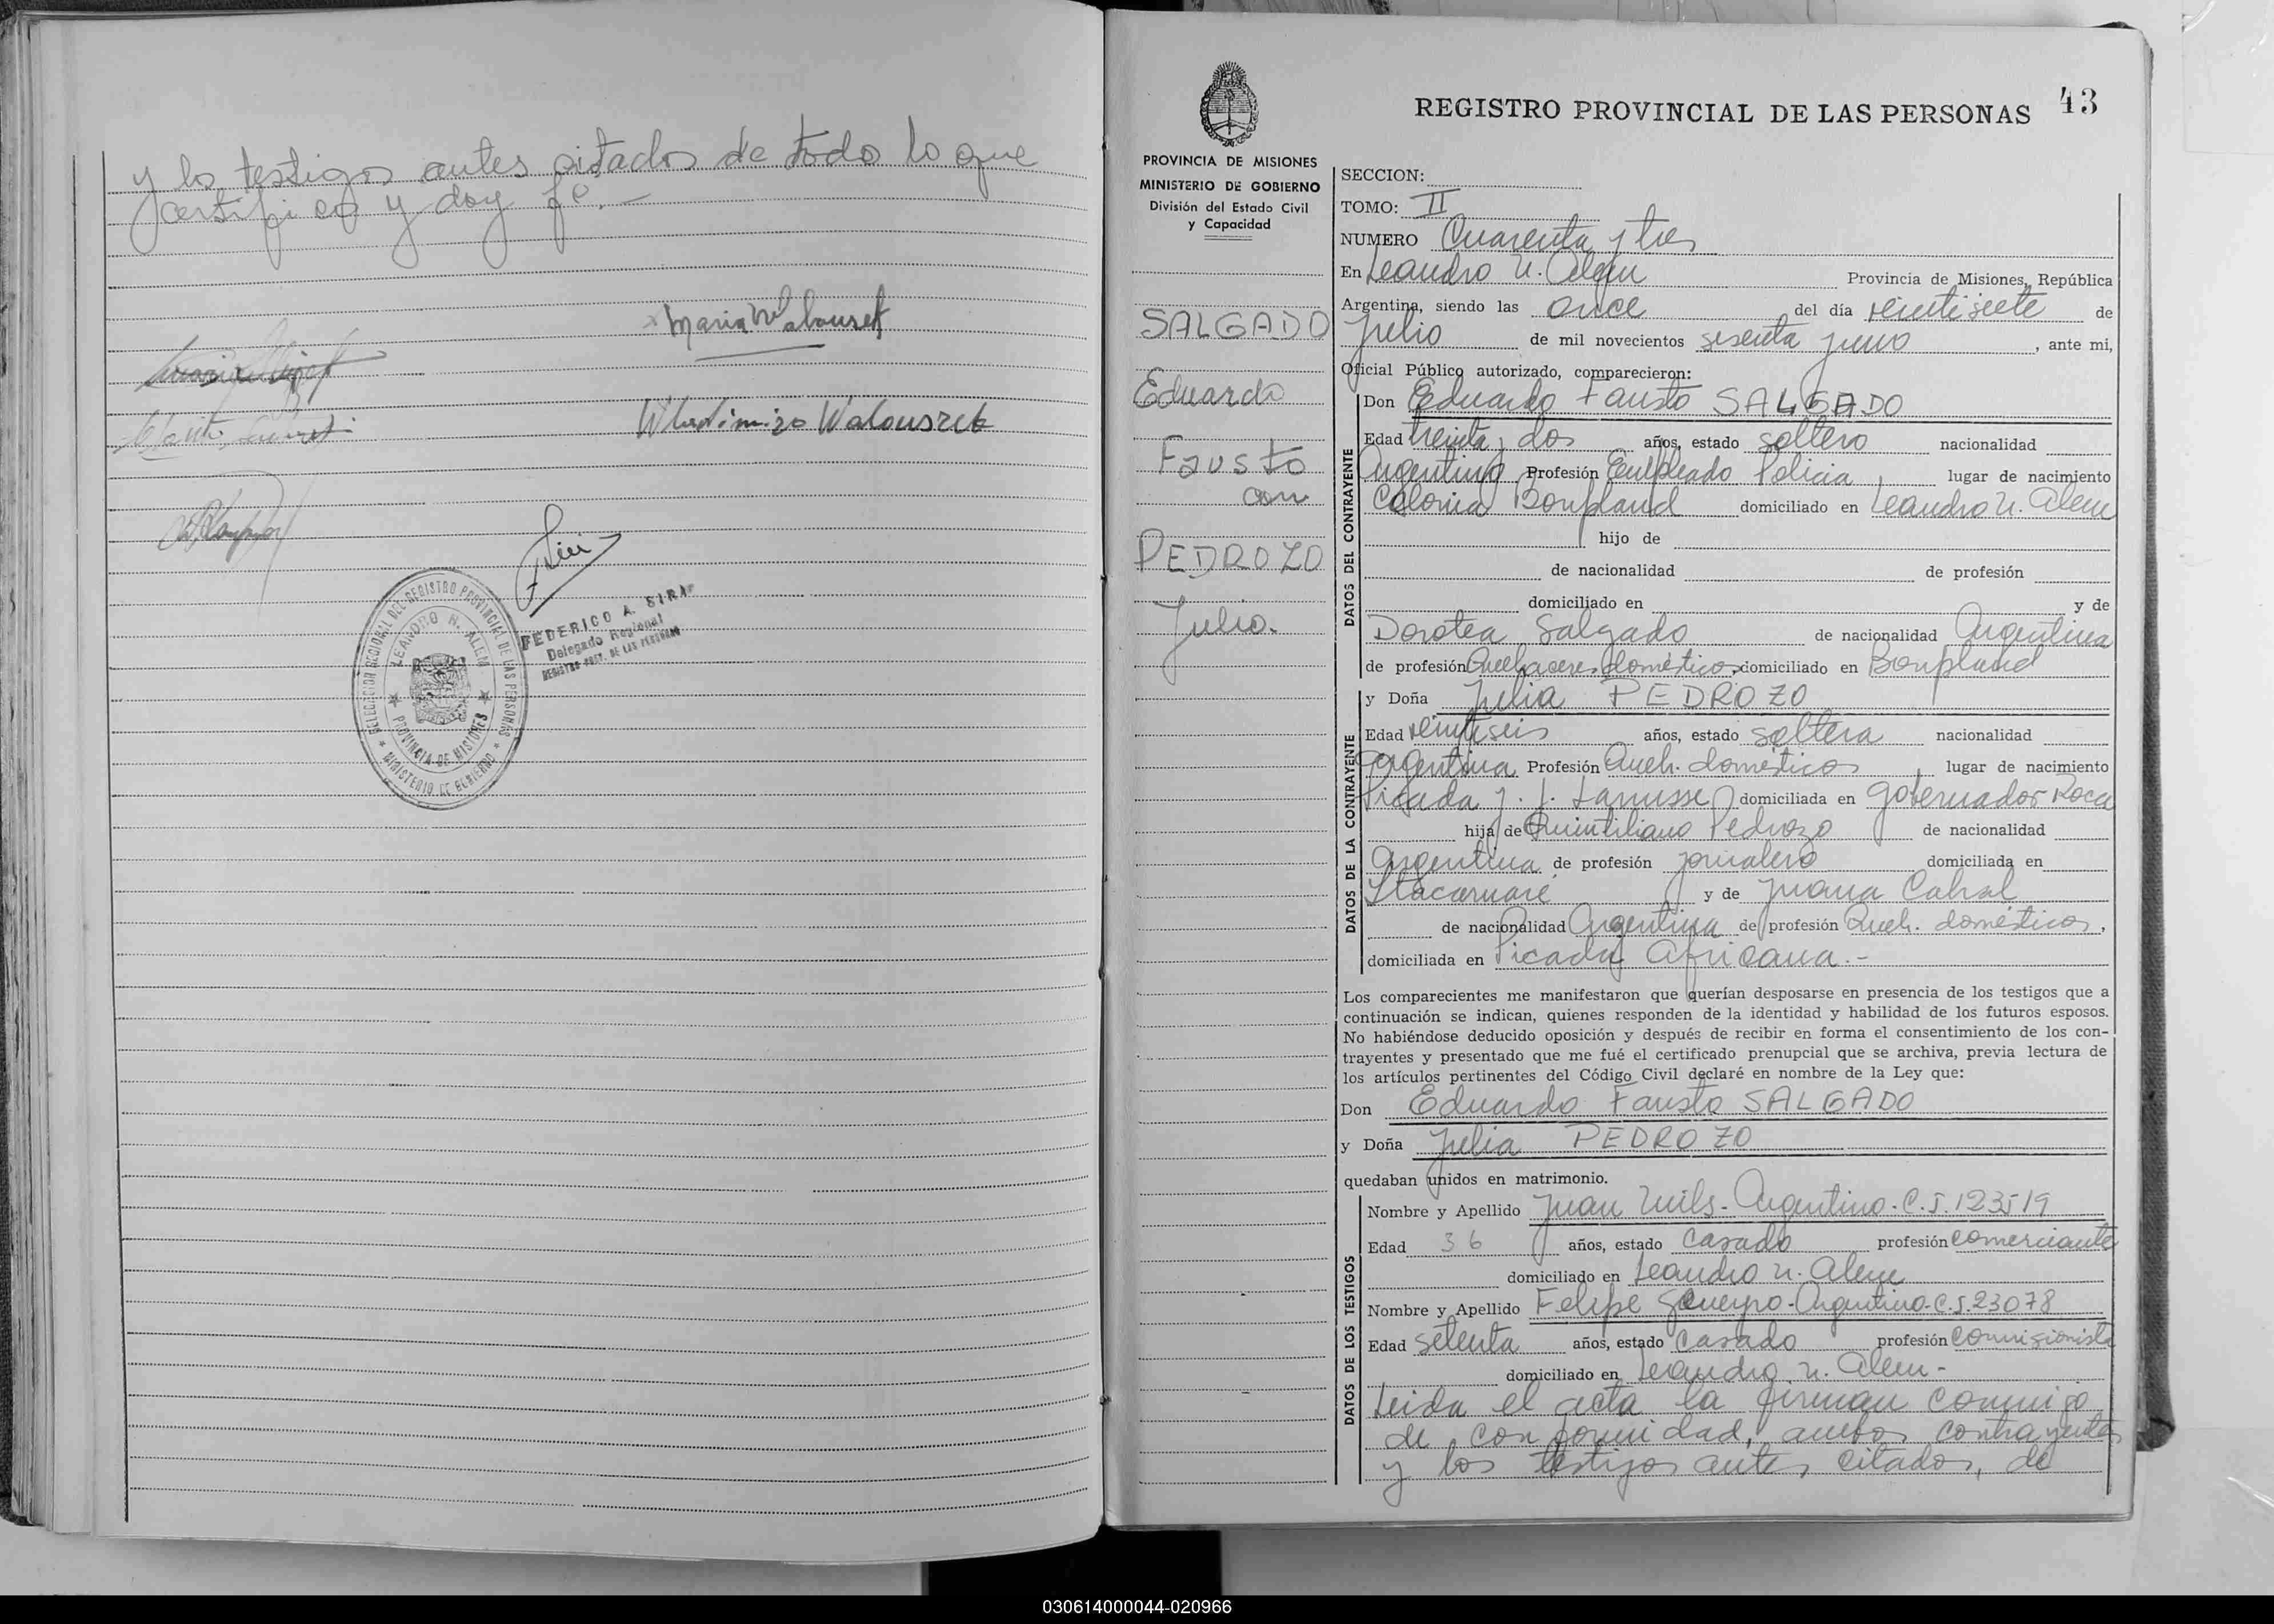 y los testigos antes citados de todo lo que
certifico y doy fé.-
Maria Walouszek
Wladimizo Walouszek
FEDERICO A. SIRI
Delegado Regional
REGISTRO PROV. DE LAS PERSONAS
DELEGACION REGIONAL DEL REGISTRO PROVINCIAL DE LAS PERSONAS
LEANDRO N. ALEM
PROVINCIA DE MISIONES
MINISTERIO DE GOBIERNO
43
REGISTRO PROVINCIAL DE LAS PERSONAS
PROVINCIA DE MISIONES
MINISTERIO DE GOBIERNO
División del Estado Civil
y Capacidad
SALGADO
Eduardo
Fausto
con
PEDROZO
Julia.
SECCION:
TOMO: II
NUMERO Cuarenta y tres
En Leandro N. Alem Provincia de Misiones, República
Argentina, siendo las once del día veintisiete de
Julio de mil novecientos sesenta y uno, ante mi,
Oficial Público autorizado, comparecieron:
DATOS DEL CONTRAYENTE
Don Eduardo Fausto SALGADO
Edad treinta y dos años, estado soltero nacionalidad
Argentino Profesión Empleado Policia, lugar de nacimiento
Colonia Bonpland domiciliado en Leandro N. Alem
hijo de
de nacionalidad de profesión
domiciliado en y de
Dorotea Salgado de nacionalidad Argentina
de profesión Quehaceres domésticos domiciliado en Bonpland
DATOS DE LA CONTRAYENTE
y Doña Julia PEDROZO
Edad veintiseis años, estado soltera nacionalidad
Argentina Profesión Queh. domésticos, lugar de nacimiento
Picada J. J. Lanusse domiciliada en Gobernador Roca
hija de Quintiliano Pedrozo de nacionalidad
Argentina de profesión jornalero domiciliada en
Itacaruaré y de Juana Cabral
de nacionalidad Argentina de profesión Queh. domésticos,
domiciliada en Picada Africana.-
Los comparecientes me manifestaron que querían desposarse en presencia de los testigos que a
continuación se indican, quienes responden de la identidad y habilidad de los futuros esposos.
No habiéndose deducido oposición y después de recibir en forma el consentimiento de los con-
trayentes y presentado que me fué el certificado prenupcial que se archiva, previa lectura de
los artículos pertinentes del Código Civil declaré en nombre de la Ley que:
Don Eduardo Fausto SALGADO
y Doña Julia PEDROZO
quedaban unidos en matrimonio.
DATOS DE LOS TESTIGOS
Nombre y Apellido Juan - Argentino. C.I. 123519
Edad 36 años, estado casado profesión comerciante
domiciliado en Leandro N. Alem
Nombre y Apellido Felipe - Argentino. C.I. 23078
Edad setenta años, estado casado profesión comisionista
domiciliado en Leandro N. Alem-
Leida el acta la firman conmigo
de conformidad, ambos contrayentes
y los testigos antes citados, de
030614000044-020966